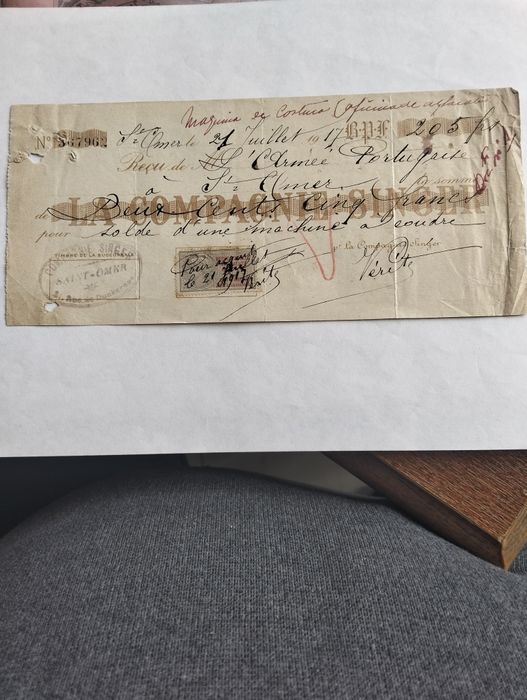 Maquina de Costura (oficina de
Nº 367962 St Omer le 21 Juillet 1917 B.P.F. 205 frs
Reçu de M L'Armée Portugaise
à St Omer la somme
de Deux Cents Cinq francs
LA COMPAGNIE SINGER
pour solde d'une machine à coudre
TIMBRE DE LA SUCCURSALE
COMPAGNIE SINGER
SAINT-OMER
Rue de Dunkerque
Pour acquit
le 21 Juillet
1917
Pr la Compagnie Singer